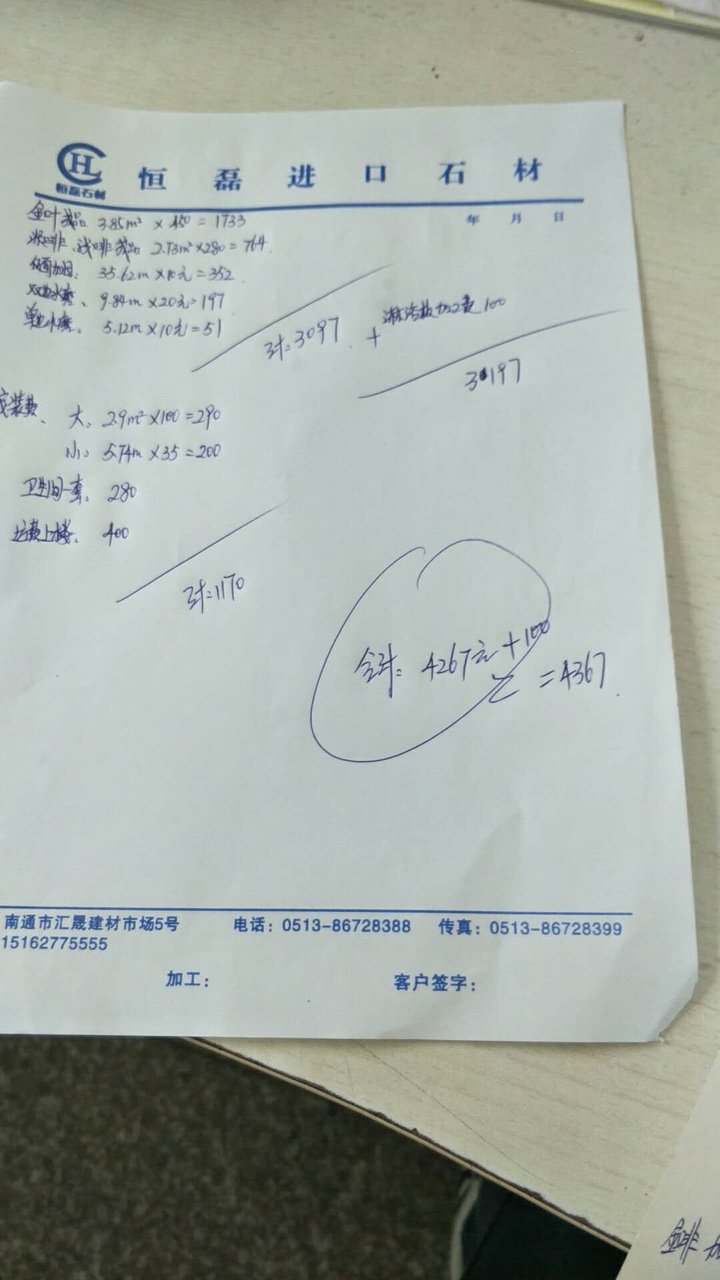 恒磊石材
恒磊进口石材
年 月 日
金叶 3.85m² × 450 = 1733
2.73m²×280=764
35.62m×10元=352
9.84m×20元=197
单边水磨、5.12m×10元=51
计:3097
+ 加工费100
3197
安装费、大: 2.9m²×100=290
小: 5.74m×35=200
卫生间一套: 280
运费上楼、400
计:1170
合计: 4267元+100
=4367
南通市汇晟建材市场5号 电话: 0513-86728388 传真: 0513-86728399
15162775555
加工: 客户签字: